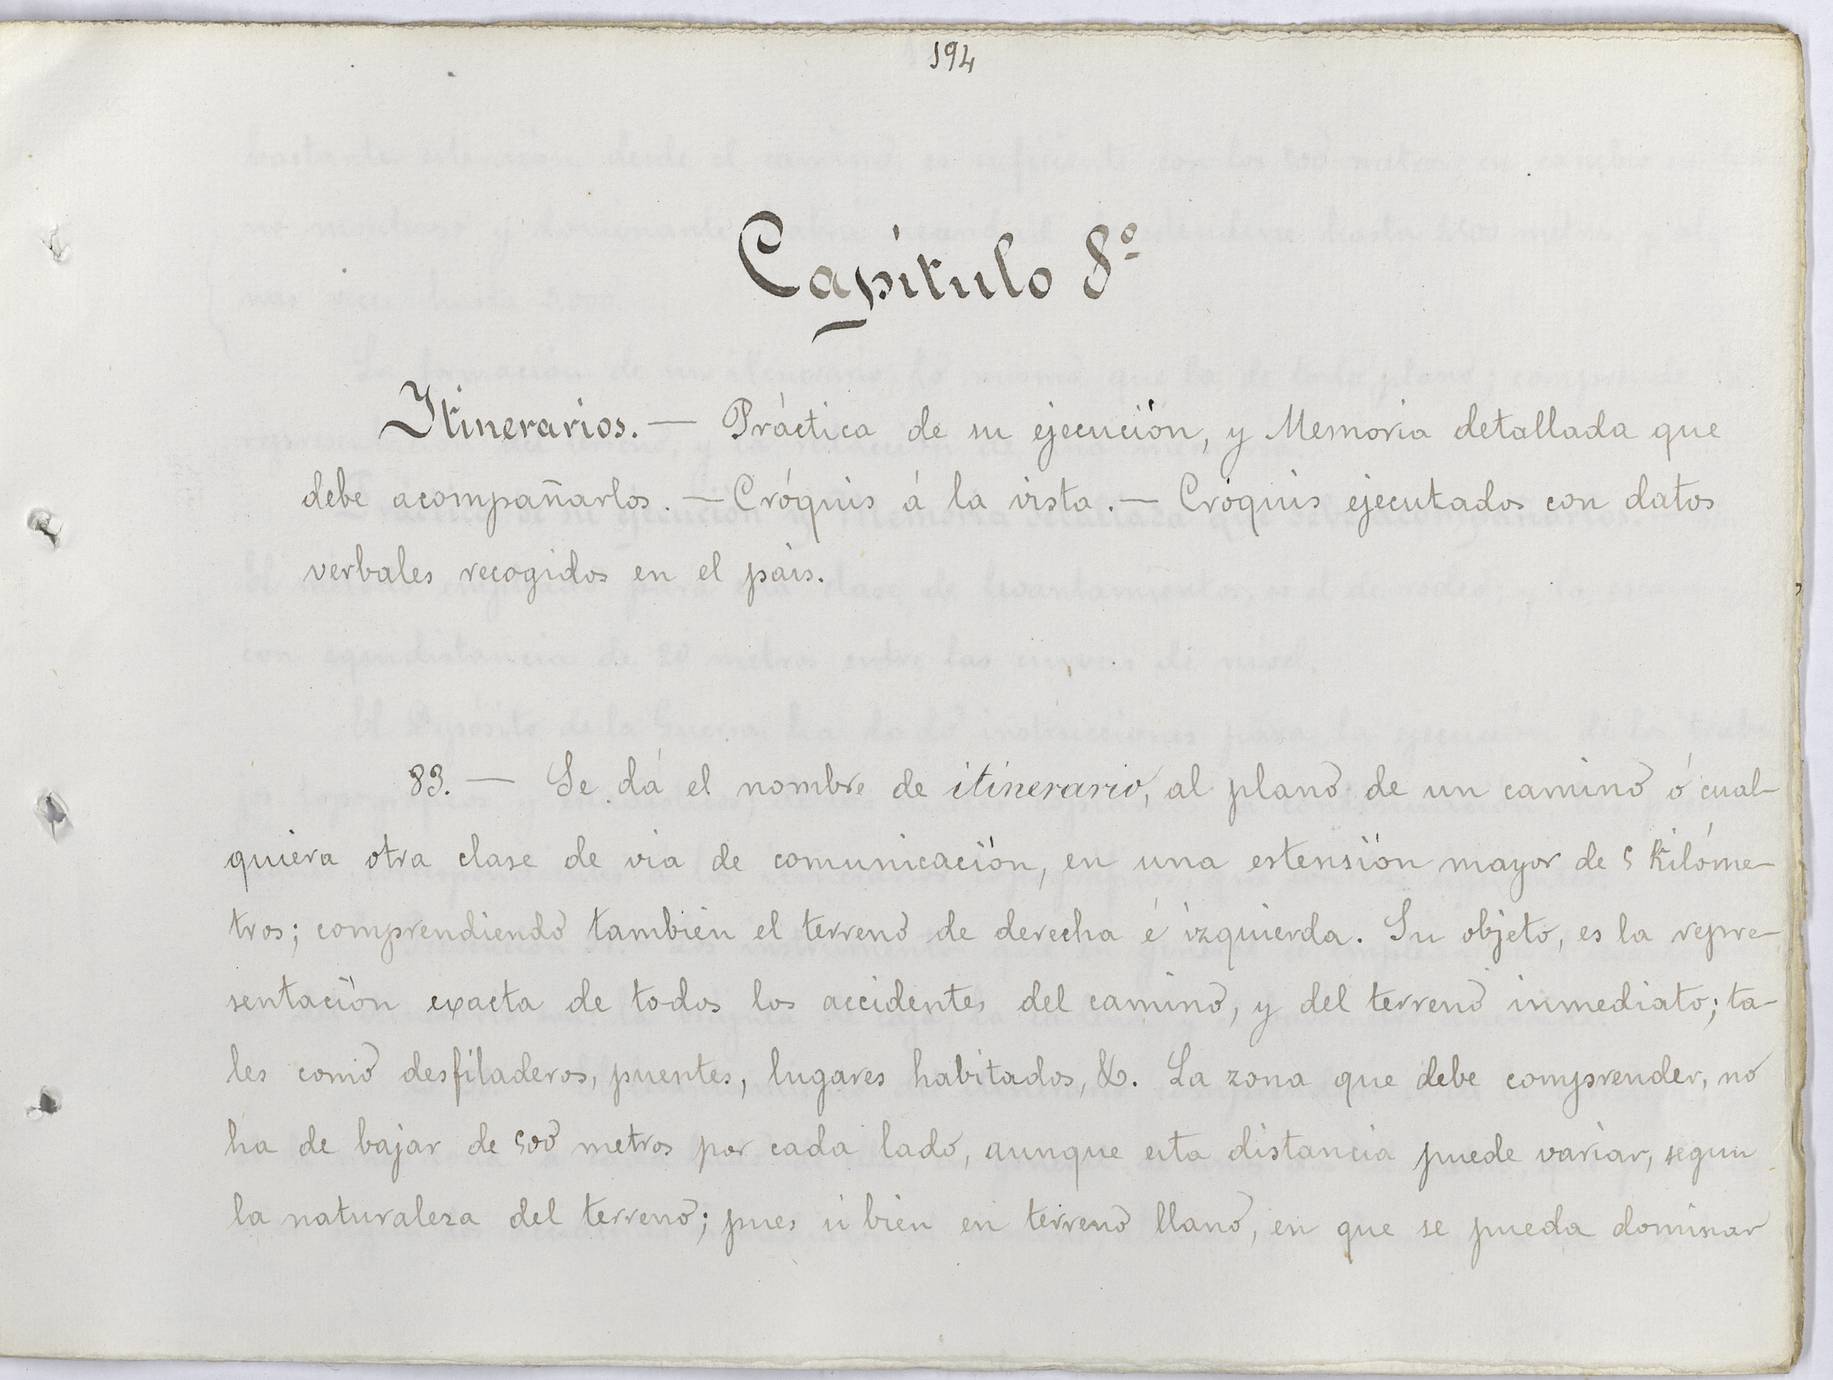 194
Capítulo 8º
Itinerarios. — Práctica de su ejecución, y Memoria detallada que
debe acompañarlos. — Cróquis á la vista. — Cróquis ejecutados con datos
verbales recogidos en el pais.
83. — Se dá el nombre de itinerario, al plano de un camino ó cual-
quiera otra clase de via de comunicación, en una estensión mayor de 5 Kilóme-
tros; comprendiendo tambien el terreno de derecha é izquierda. Su objeto, es la repre-
sentación exacta de todos los accidentes del camino, y del terreno inmediato; ta-
les como desfiladeros, puentes, lugares habitados, &. La zona que debe comprender, no
ha de bajar de 500 metros por cada lado, aunque esta distancia puede variar, segun
la naturaleza del terreno; pues si bien en terreno llano, en que se pueda dominar